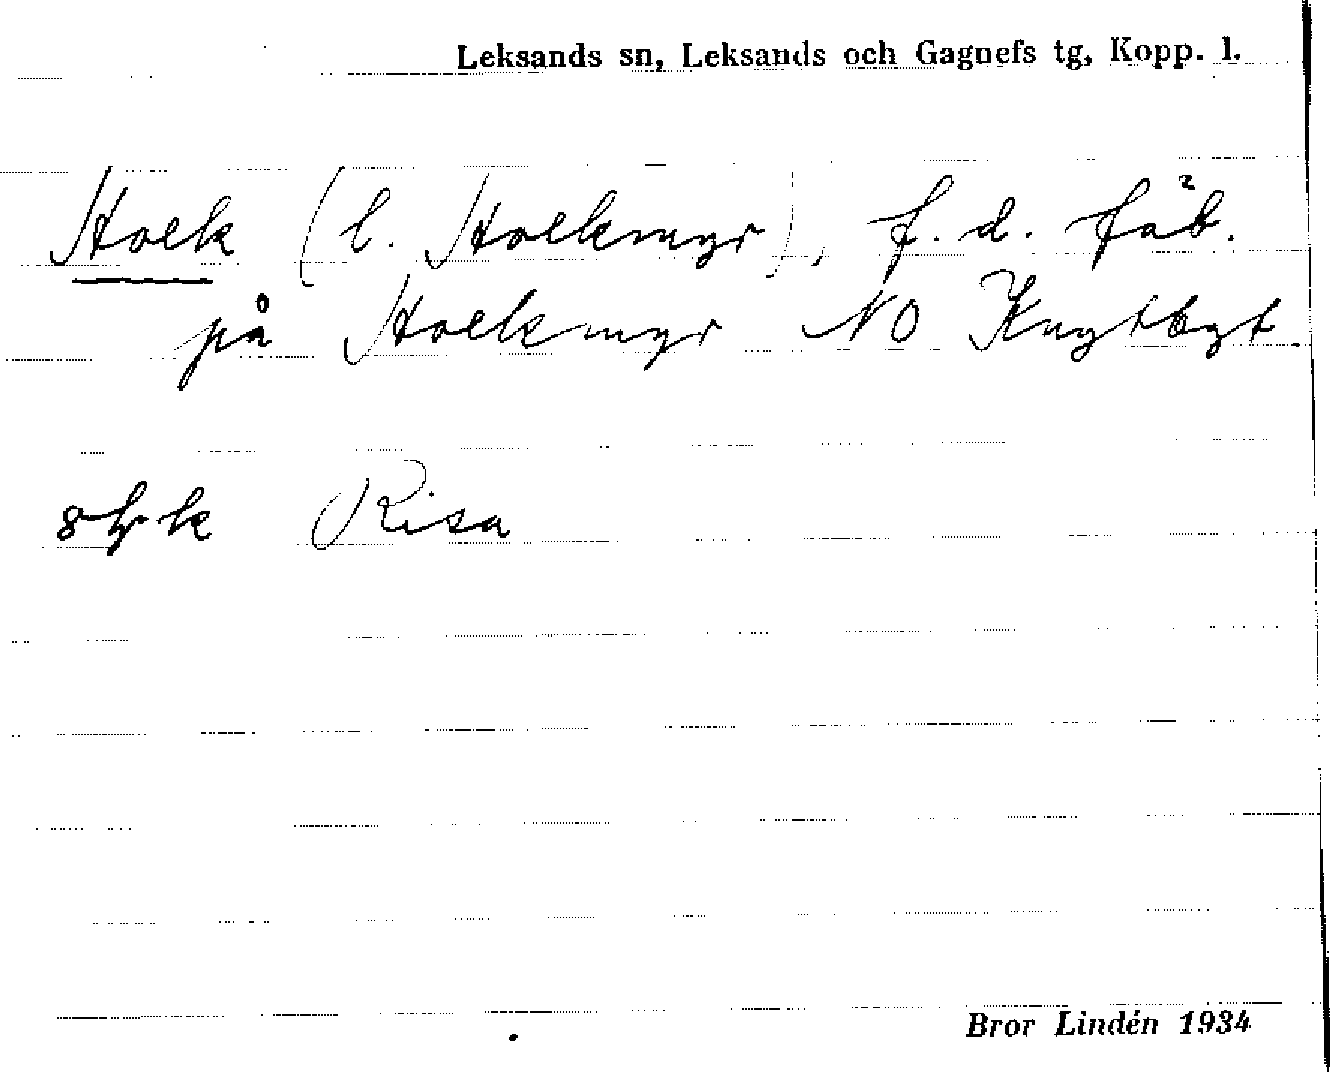 Leksands sn, Leksands och Gagnefs tg, Kopp. l.
Stock (l. Stockmyr), f. d. fäb.
på Stockmyr NO Knytbyt.
Risa
Bror Lindén 1934